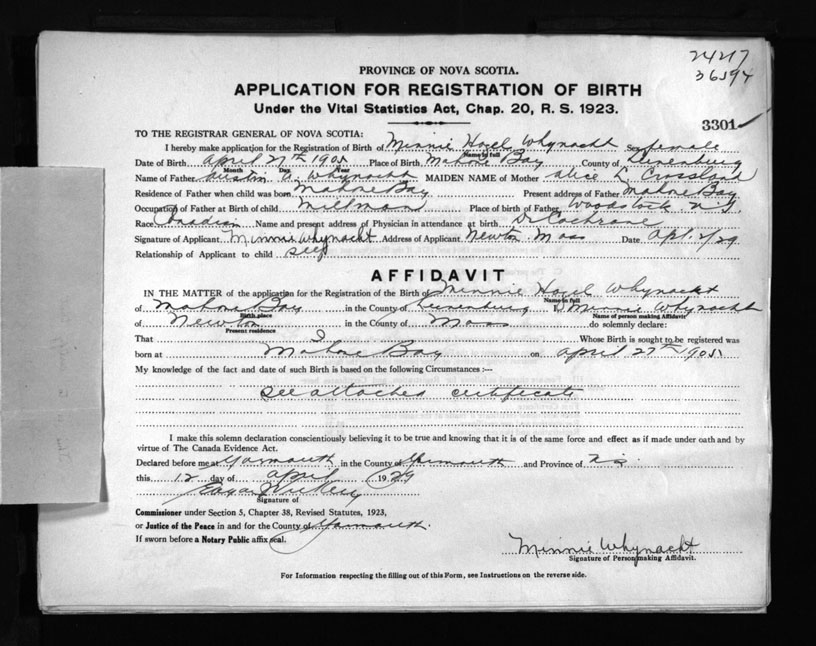 24217
36594
PROVINCE OF NOVA SCOTIA.
APPLICATION FOR REGISTRATION OF BIRTH
Under the Vital Statistics Act, Chap. 20, R. S. 1923.
3301
TO THE REGISTRAR GENERAL OF NOVA SCOTIA:
I hereby make application for the Registration of Birth of Minnie Hazel Whynacht Sex female
Name in full
Date of Birth April 27th 1905 Place of Birth Mahone Bay County of Lunenburg
Month Day Year
Name of Father A. Whynacht MAIDEN NAME of Mother Alice L. Crossland
Residence of Father when child was born Mahone Bay Present address of Father Mahone Bay
Occupation of Father at Birth of child Millman Place of birth of Father Woodstock
Race Canadian Name and present address of Physician in attendance at birth Dr Cochrane
Signature of Applicant Minnie Whynacht Address of Applicant Newton Mass Date Apl. 2/29
Relationship of Applicant to child self
AFFIDAVIT
IN THE MATTER of the application for the Registration of the Birth of Minnie Hazel Whynacht
Name in full
of Mahone Bay in the County of Lunenburg I, Minnie Whynacht
Birth place Name of person making Affidavit
of Newton in the County of Mass do solemnly declare:
Present residence
That I Whose Birth is sought to be registered was
born at Mahone Bay on April 27th 1905
My knowledge of the fact and date of such Birth is based on the following Circumstances :—
See attached certificate
I make this solemn declaration conscientiously believing it to be true and knowing that it is of the same force and effect as if made under oath and by
virtue of The Canada Evidence Act.
Declared before me at Yarmouth in the County of Yarmouth and Province of N.S.
this 12 day of April 1929
Signature of
Commissioner under Section 5, Chapter 38, Revised Statutes, 1923,
or Justice of the Peace in and for the County of Yarmouth.
If sworn before a Notary Public affix seal.
Minnie Whynacht
Signature of Person making Affidavit.
For Information respecting the filling out of this Form, see Instructions on the reverse side.